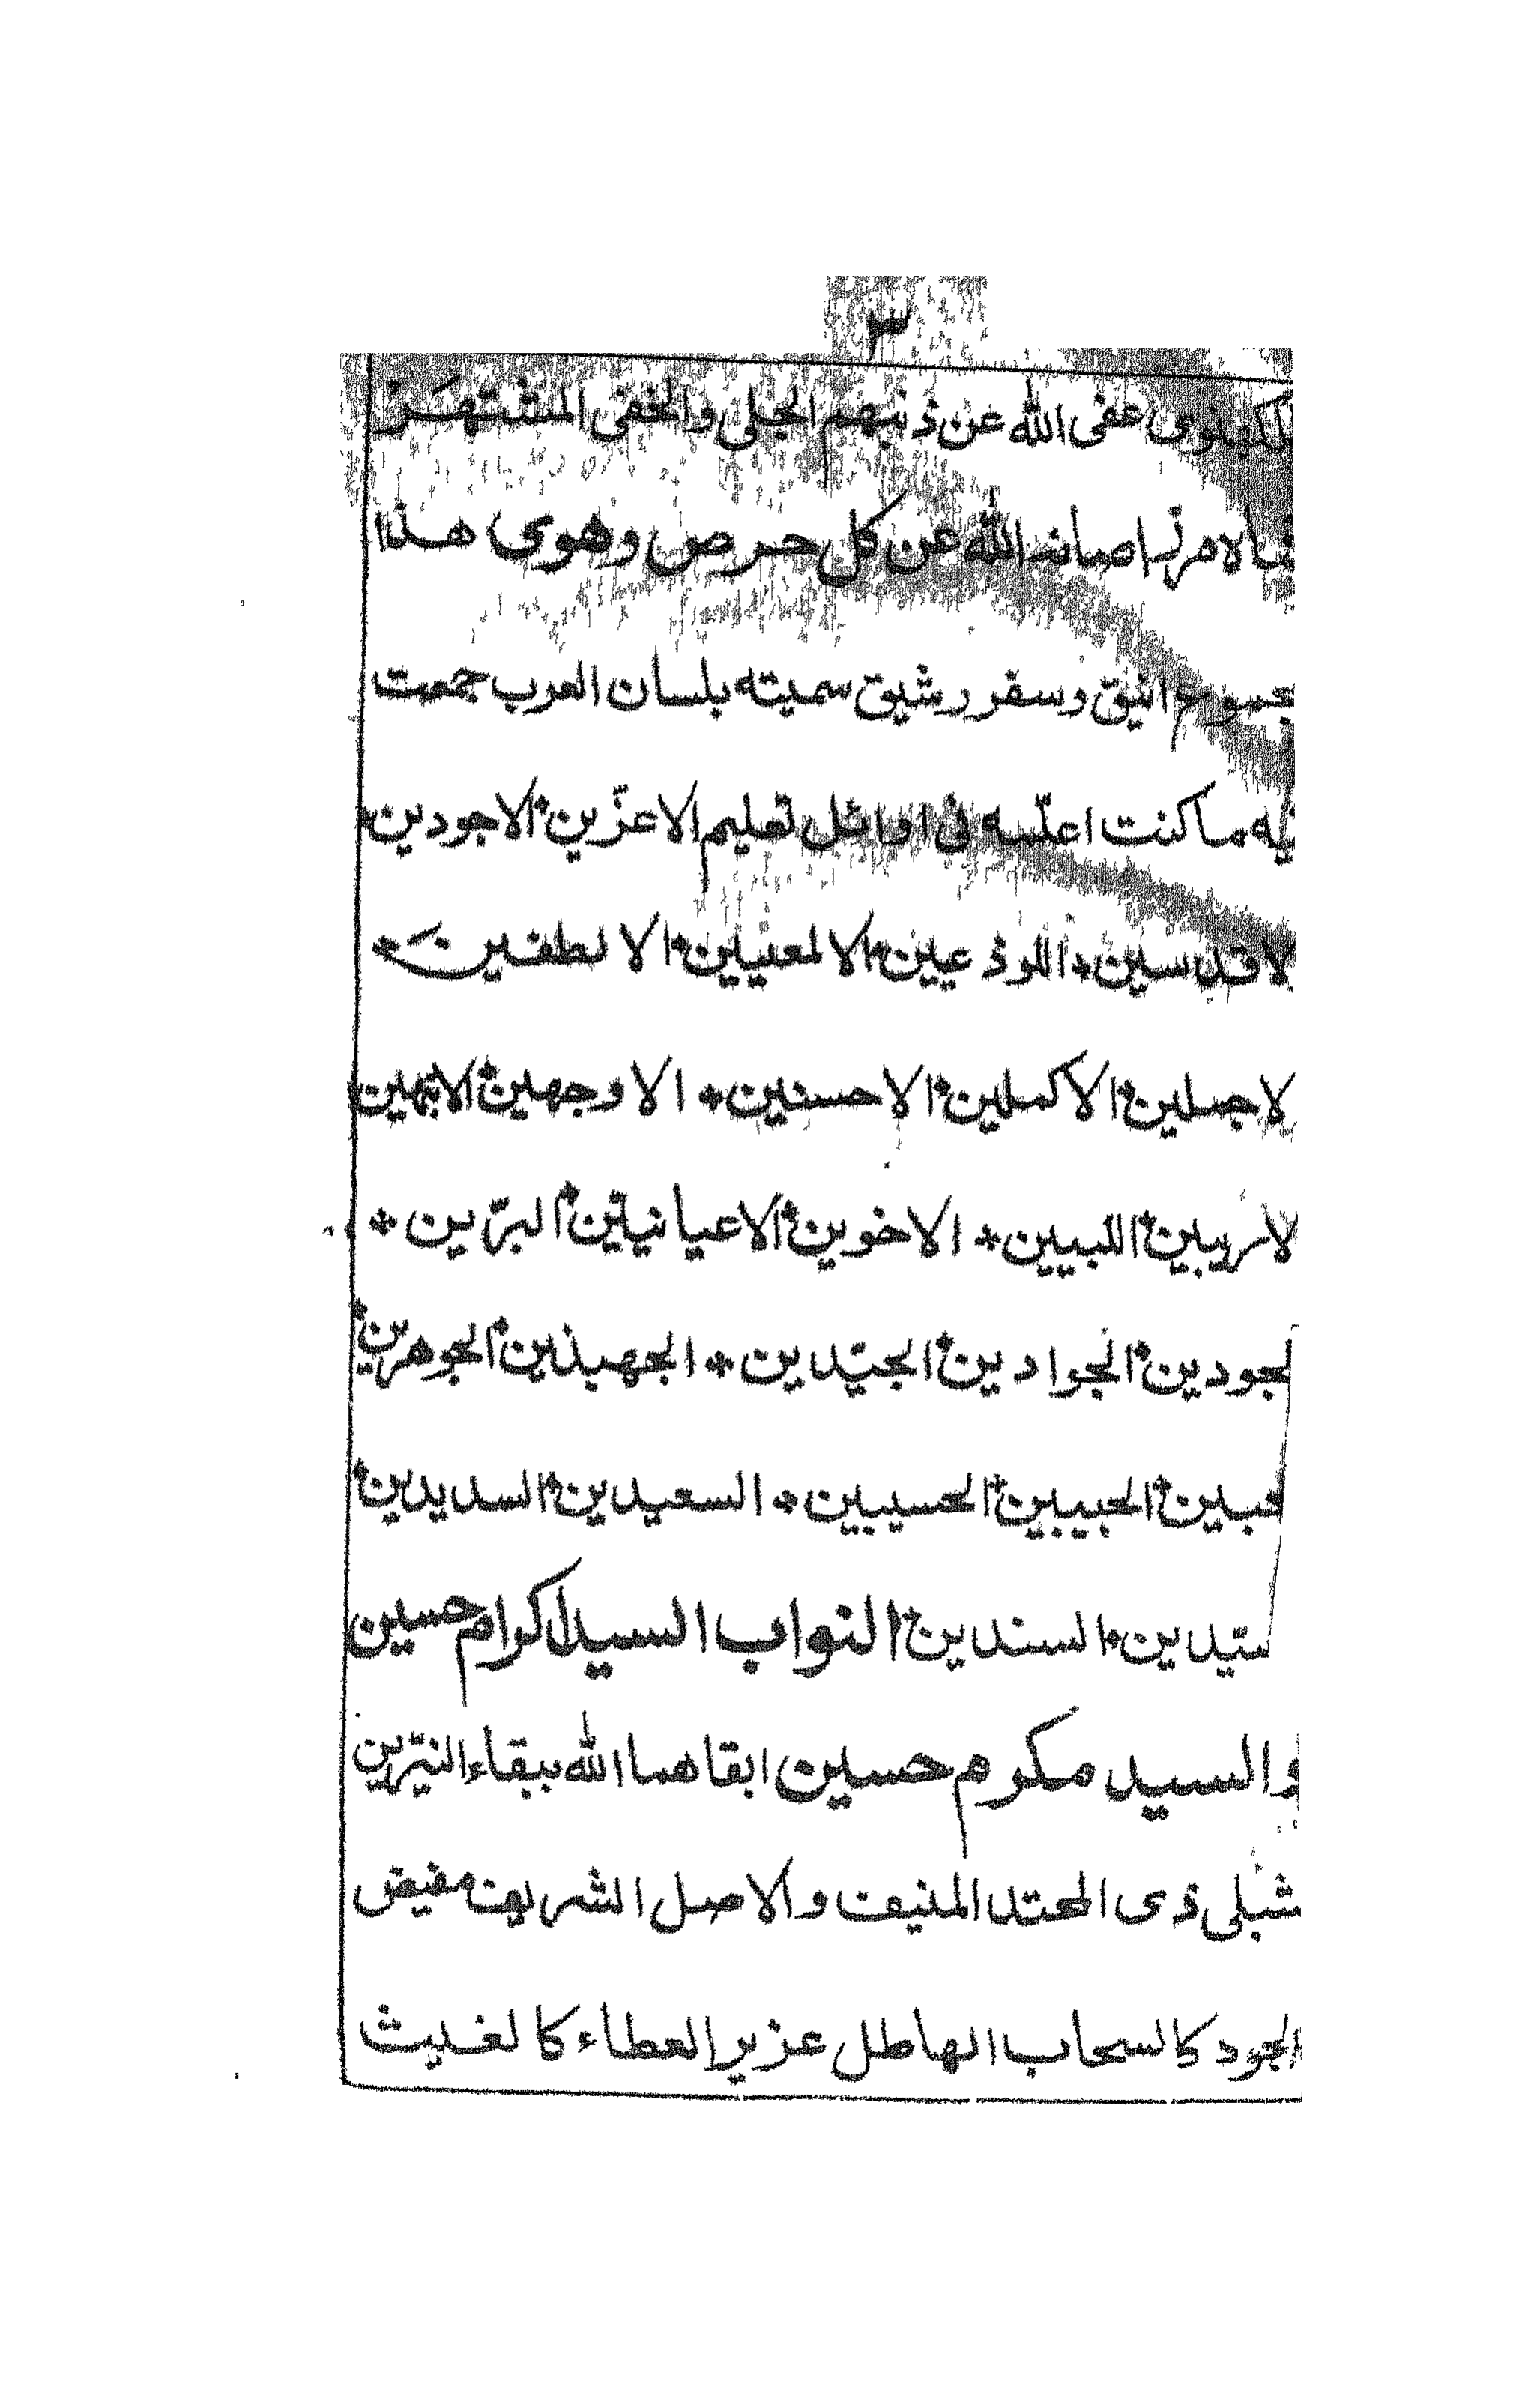 ٣
اللكهنوى عفى الله عن ذنبهم الجلى والخفى المشتهَر
مرزا صانه الله عن كل حرص وهوى هذا
مجموع انيق وسفر رشيق سميته بلسان العرب جمعت
فيه ما كنت اعلّمه فى اوائل تعليم الاعزّين * الاجودين *
الاقدسين * اللوذعيين * الالمعيين * الالطفين *
الاجملين * الاكملين * الاحسنين * الاوجهين * الابهين
اللبيبين * الاخوين * الاعيانيين * البرّين *
الجودين * الجوادين * الجيّدين * الجهبذين * الجوهرين *
الحبيبين * الحسيبين * السعيدين * السديدين *
السيّدين * السندين * النواب السيد اكرام حسين
والسيد مكرم حسين ابقاهما الله ببقاء النيّرين
شبلى ذى المحتد المنيف والاصل الشريف مفيض
الجود كالسحاب الهاطل عزيز العطاء كالغيث